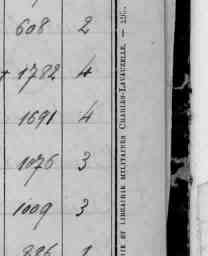 608 2
+ 1782 4
1691 4
1076 3
1009 3
896 1
RIE ET LIBRAIRIE MILITAIRES CHARLES-LAVAUZELLE. — 256.